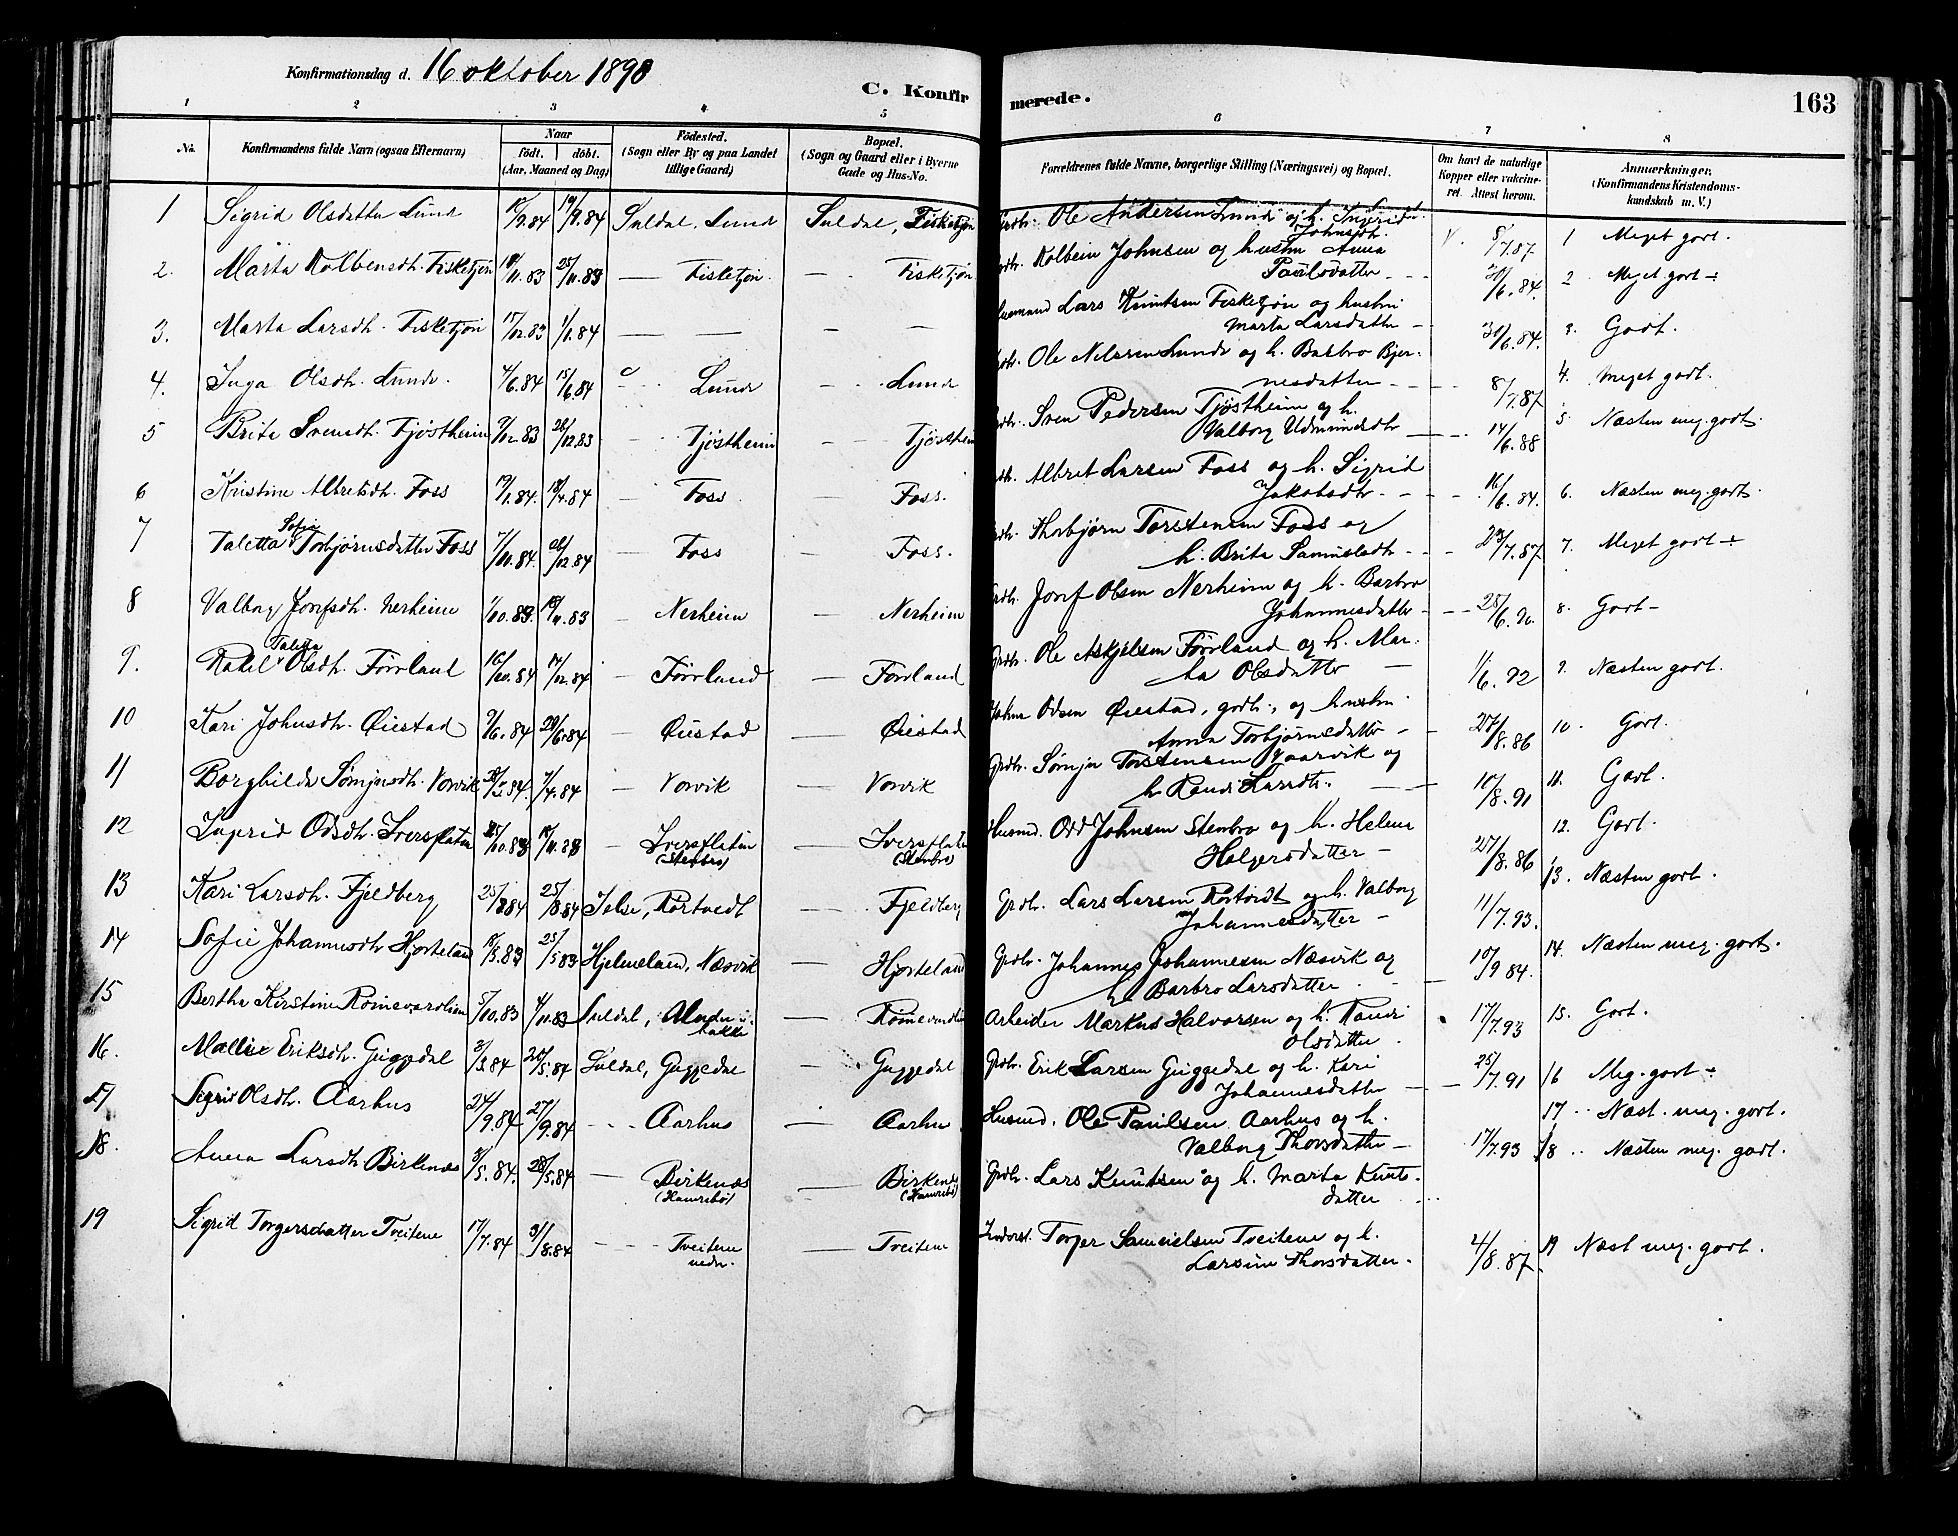 Konfirmationsdag d. 16 oktober 1898
C. Konfirmerede.
163
1 2 3 4 5 6 7 8
No.
Konfirmandens fulde Navn (ogsaa Efternavn)
Naar
født. døbt.
(Aar, Maaned og Dag)
Fødested.
(Sogn eller By og paa Landet
tillige Gaard)
Bopæl.
(Sogn og Gaard eller i Byerne
Gade og Hus-No.
Forældrenes fulde Navne, borgerlige Stilling (Næringsvei) og Bopæl.
Om havt de naturlige
Kopper eller vakcine-
ret. Attest herom.
Anmærkninger.
(Konfirmandens Kristendoms-
kundskab m. V.)
1 Sigrid Olsdatter Lund 19/9.84 Suldal, Lund Suldal, Fisketjøn Grdbr. Ole Andersen Lunde og h. Ingerid
Johnsdtr. 8/7.87 1 Meget godt.
2. Marta Kolbensdtr. Fisketjøn 25/11.83 — Fisketjøn. — Fisketjøn Kolbein Johnsen og hustru Anna
Paulsdatter 30/6.84. 2 Meget godt ÷
3. Marta Larsdtr. Fisketjøn 17/12.83 1/1.84 — — — — Husmand Lars Knutsen Fisketjøn og hustru
Marta Larsdatter — 30/6.84. 3. Godt.
4. Inga Olsdtr. Lunde. 4/6.84 15/6.84 Lunde — Lunde Ole Nelssen Lunde og h. Barbro Bjer-
nesdatter 8/7.87 4. Meget godt.
5 Brite Svendtr. Tjøstheim 9/12.83 26/12.83 Tjøstheim Tjøstheim Sven Pedersen Tjøstheim og h.
Valborg Udmundsdtr 14/6.88 5 Næsten meg. godt.
6 Kristine Albretsdtr. Foss 19/1.84. — Foss — Foss. Albret Larsen Foss og h. Sigrid
Jakobsdtr. 16/6.84. 6. Næsten meg. godt.
7 Taletta Sofie Torbjørnsdatter Foss 7/11.84 26/12.84 — Foss — Foss. Thorbjørn Torstensen Foss og
h. Brita Samuelsdtr. 23/7.87 7. Meget godt ÷
8 Valborg Josefsdtr. Nerheim 1/10.83 18/11.83 — Nerheim — Nerheim Josef Olsen Nerheim og h. Barbro
Johannesdatter 25/6.90. 8. Godt —
9. Rakel Taletta Olsdtr. Førrland 16/10.84 14/12.84 — Førrland — Førrland Grdbr. Ole Askjelsen Førrland og h. Mar-
ta Olsdatter — 1/6.92 9. Næsten godt.
10 Kari Johnsdtr. Øiestad 9/6.84 29/6.84 — Øiestad — Øiestad Johne Odsen Øiestad, gdbr., og hustru
Anna Torbjørnsdatter 27/8.86 10. Godt.
11 Borghilde Sømjesdtr. Vorvik 7/4.84 — Vorvik — Vorvik Grdbr. Sømje Torstensen Vaarvik og
h. Randi Larsdtr. 10/8.91 11. Godt.
12 Ingrid Odsdtr. Iversflaten 25/10.83 — Iversflaten
(Stenbro) — Iversflaten
(Stenbro) Husmd. Odd Johnsen Stenbro og h. Helene
Holgersdatter — 27/8.86 12. Godt.
13 Kari Larsdtr. Fjeldberg Jelse, Rørtvedt — Fjeldberg Grdbr. Lars Larsen Rørtvedt og h. Valborg
Johannesdatter — 11/7.93. 13. Næsten godt.
14 Sofie Johannesdtr Hjorteland 25/5.83 Hjelmeland, Næsvik — Hjorteland Grdbr. Johannes Johannesen Næsvik og
h. Barbro Larsdatter. 10/9.84. 14. Næsten meg. godt.
15 Bertha Kirstine Romevarolien 5/10.83 4/11.83 Suldal, — Arbeider Markus Halvorsen og h. Randi
Olsdatter. 17/7.93 15. Godt.
16. Mallie Eriksdtr. Guggedal 3/3.84 Suldal, Guggedal — Guggedal Grdbr. Erik Larsen Guggedal og h. Kari
Johannesdatter — 25/7.91 16 Meg. godt ÷
17 Sigrid Olsdtr. Aarhus 24/9.84 27/9.84 Aarhus — Aarhus Husmd. Ole Paulsen Aarhus og h.
Valborg Thorsdatter — 17/7.93 17 .. Næst. meg. godt.
18. Anna Larsdtr Birkenæs 3/5.84. 28/5.84 — Birkenæs
(Hamrebø) — Birkenæs
(Hamrebø) Grdbr. Lars Knutsen og h. Marta Knuts-
datter 18 .. Næsten meg. godt.
19 Sigrid Torgersdatter Tveitene 17/7.84 3/8.84 Tveitene
nedr. — Tveitene Inderst. Torger Samuelsen Tveitene og h.
Larsine Thorsdatter. 4/8.87. 19 Næst meg. godt.